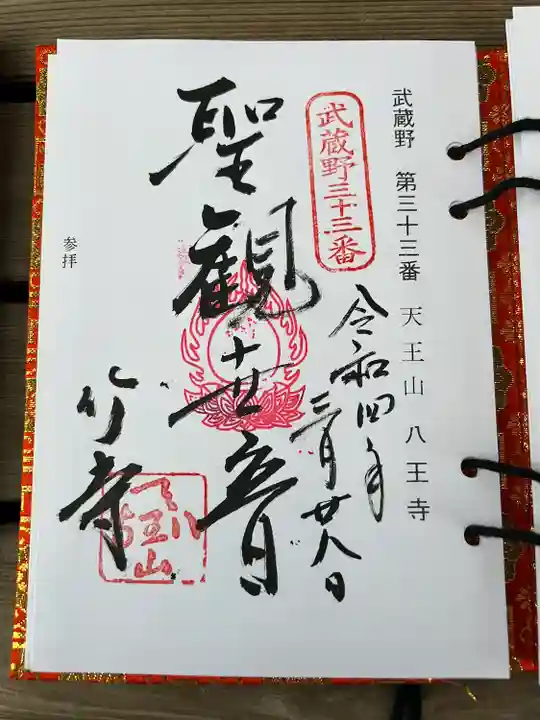 武蔵野 第三十三番 天王山 八王寺
武蔵野三十三番
令和四年
三月廿八日
聖観世音
竹寺
参拝